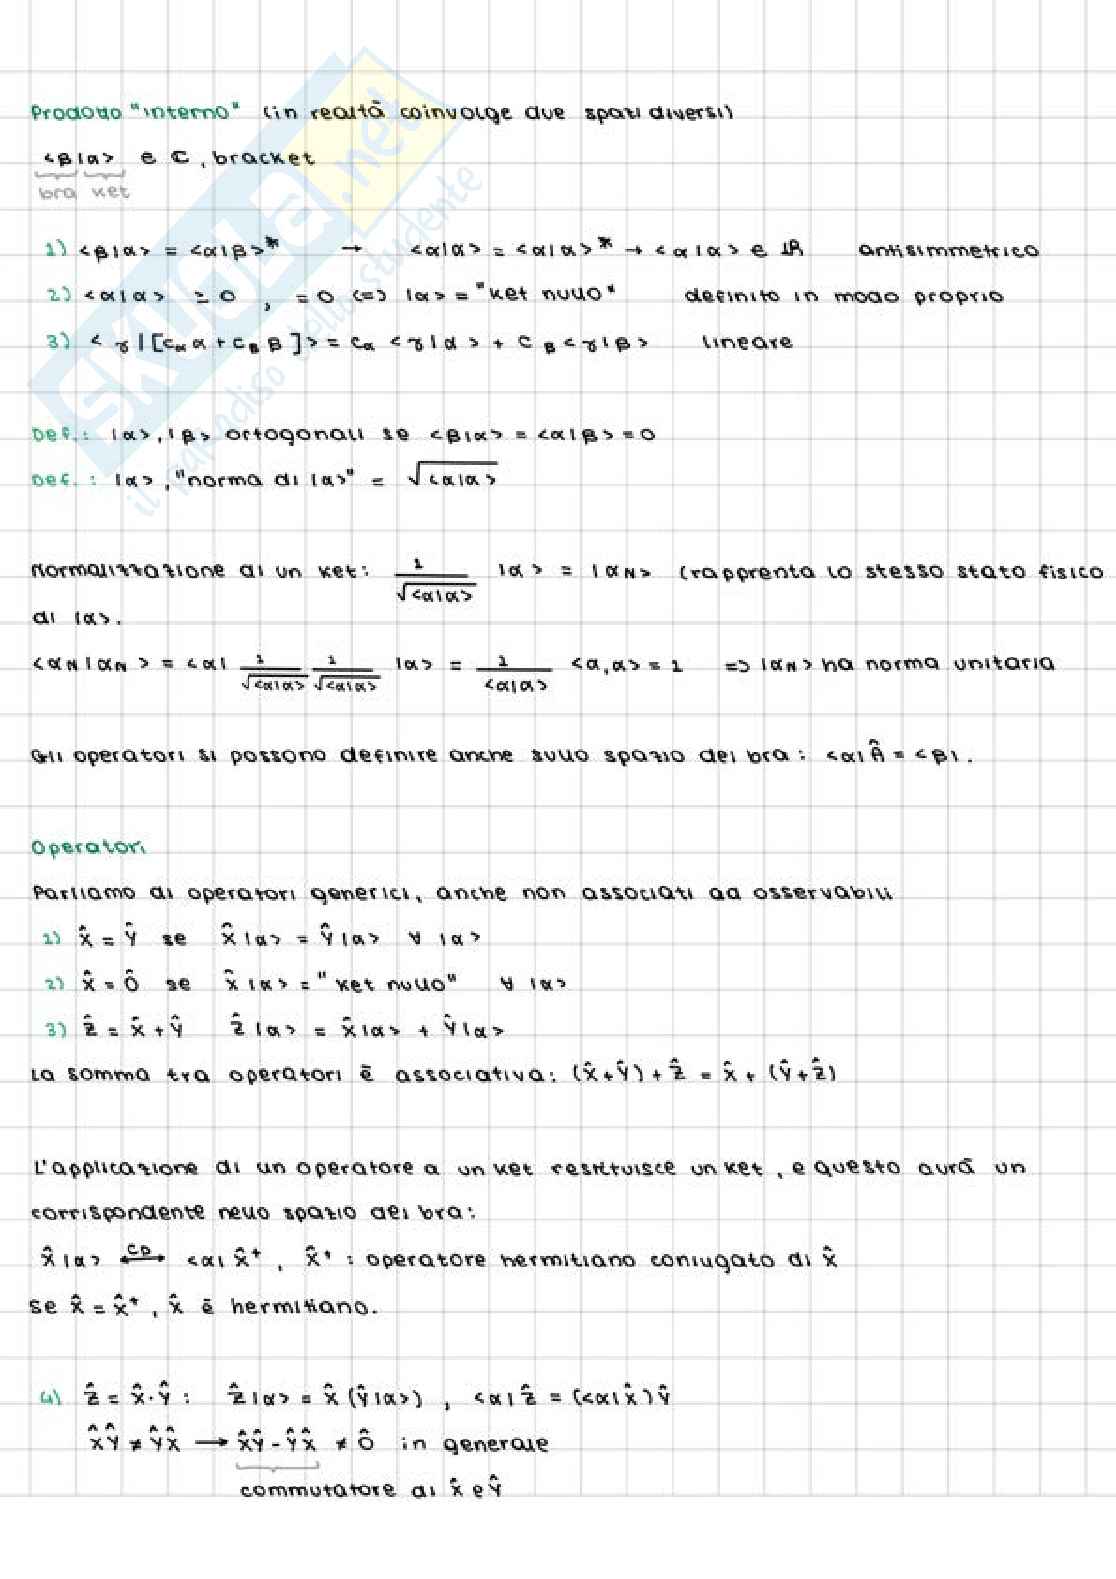 Prodotto "interno" (in realtà coinvolge due spazi diversi)
<β|α> ∈ C, bracket
bra ket
1) <β|α> = <α|β>* → <α|α> = <α|α>* → <α|α> ∈ ℝ antisimmetrico
2) <α|α> ≥ 0 , = 0 <=> |α> = "ket nullo" definito in modo proprio
3) <γ|[cα α + cβ β]> = cα <γ|α> + cβ <γ|β> lineare
Def.: |α>, |β> ortogonali se <β|α> = <α|β> = 0
Def. : |α>, "norma di |α>" = √<α|α>
Normalizzazione di un ket: 1/√<α|α> |α> = |αN> (rapprenta lo stesso stato fisico
di |α>.
<αN|αN> = <α| 1/√<α|α> 1/√<α|α> |α> = 1/<α|α> <α,α> = 1 => |αN> ha norma unitaria
Gli operatori si possono definire anche sullo spazio dei bra: <α|Â = <β|.
Operatori
Parliamo di operatori generici, anche non associati ad osservabili
1) X̂ = Ŷ se X̂|α> = Ŷ|α> ∀ |α>
2) X̂ = Ô se X̂|α> = "ket nullo" ∀ |α>
3) Ẑ = X̂ + Ŷ Ẑ|α> = X̂|α> + Ŷ|α>
La somma tra operatori è associativa: (X̂+Ŷ)+Ẑ = X̂+(Ŷ+Ẑ)
L'applicazione di un operatore a un ket restituisce un ket, e questo avrà un
corrispondente nello spazio dei bra:
X̂|α> <-CD-> <α|X̂⁺, X̂⁺: operatore hermitiano coniugato di X̂
se X̂ = X̂⁺, X̂ è hermitiano.
4) Ẑ = X̂·Ŷ: Ẑ|α> = X̂(Ŷ|α>), <α|Ẑ = (<α|X̂)Ŷ
X̂Ŷ ≠ ŶX̂ → X̂Ŷ - ŶX̂ ≠ Ô in generale
commutatore di X̂ e Ŷ
SKUOLA.net
il paradiso dello studente